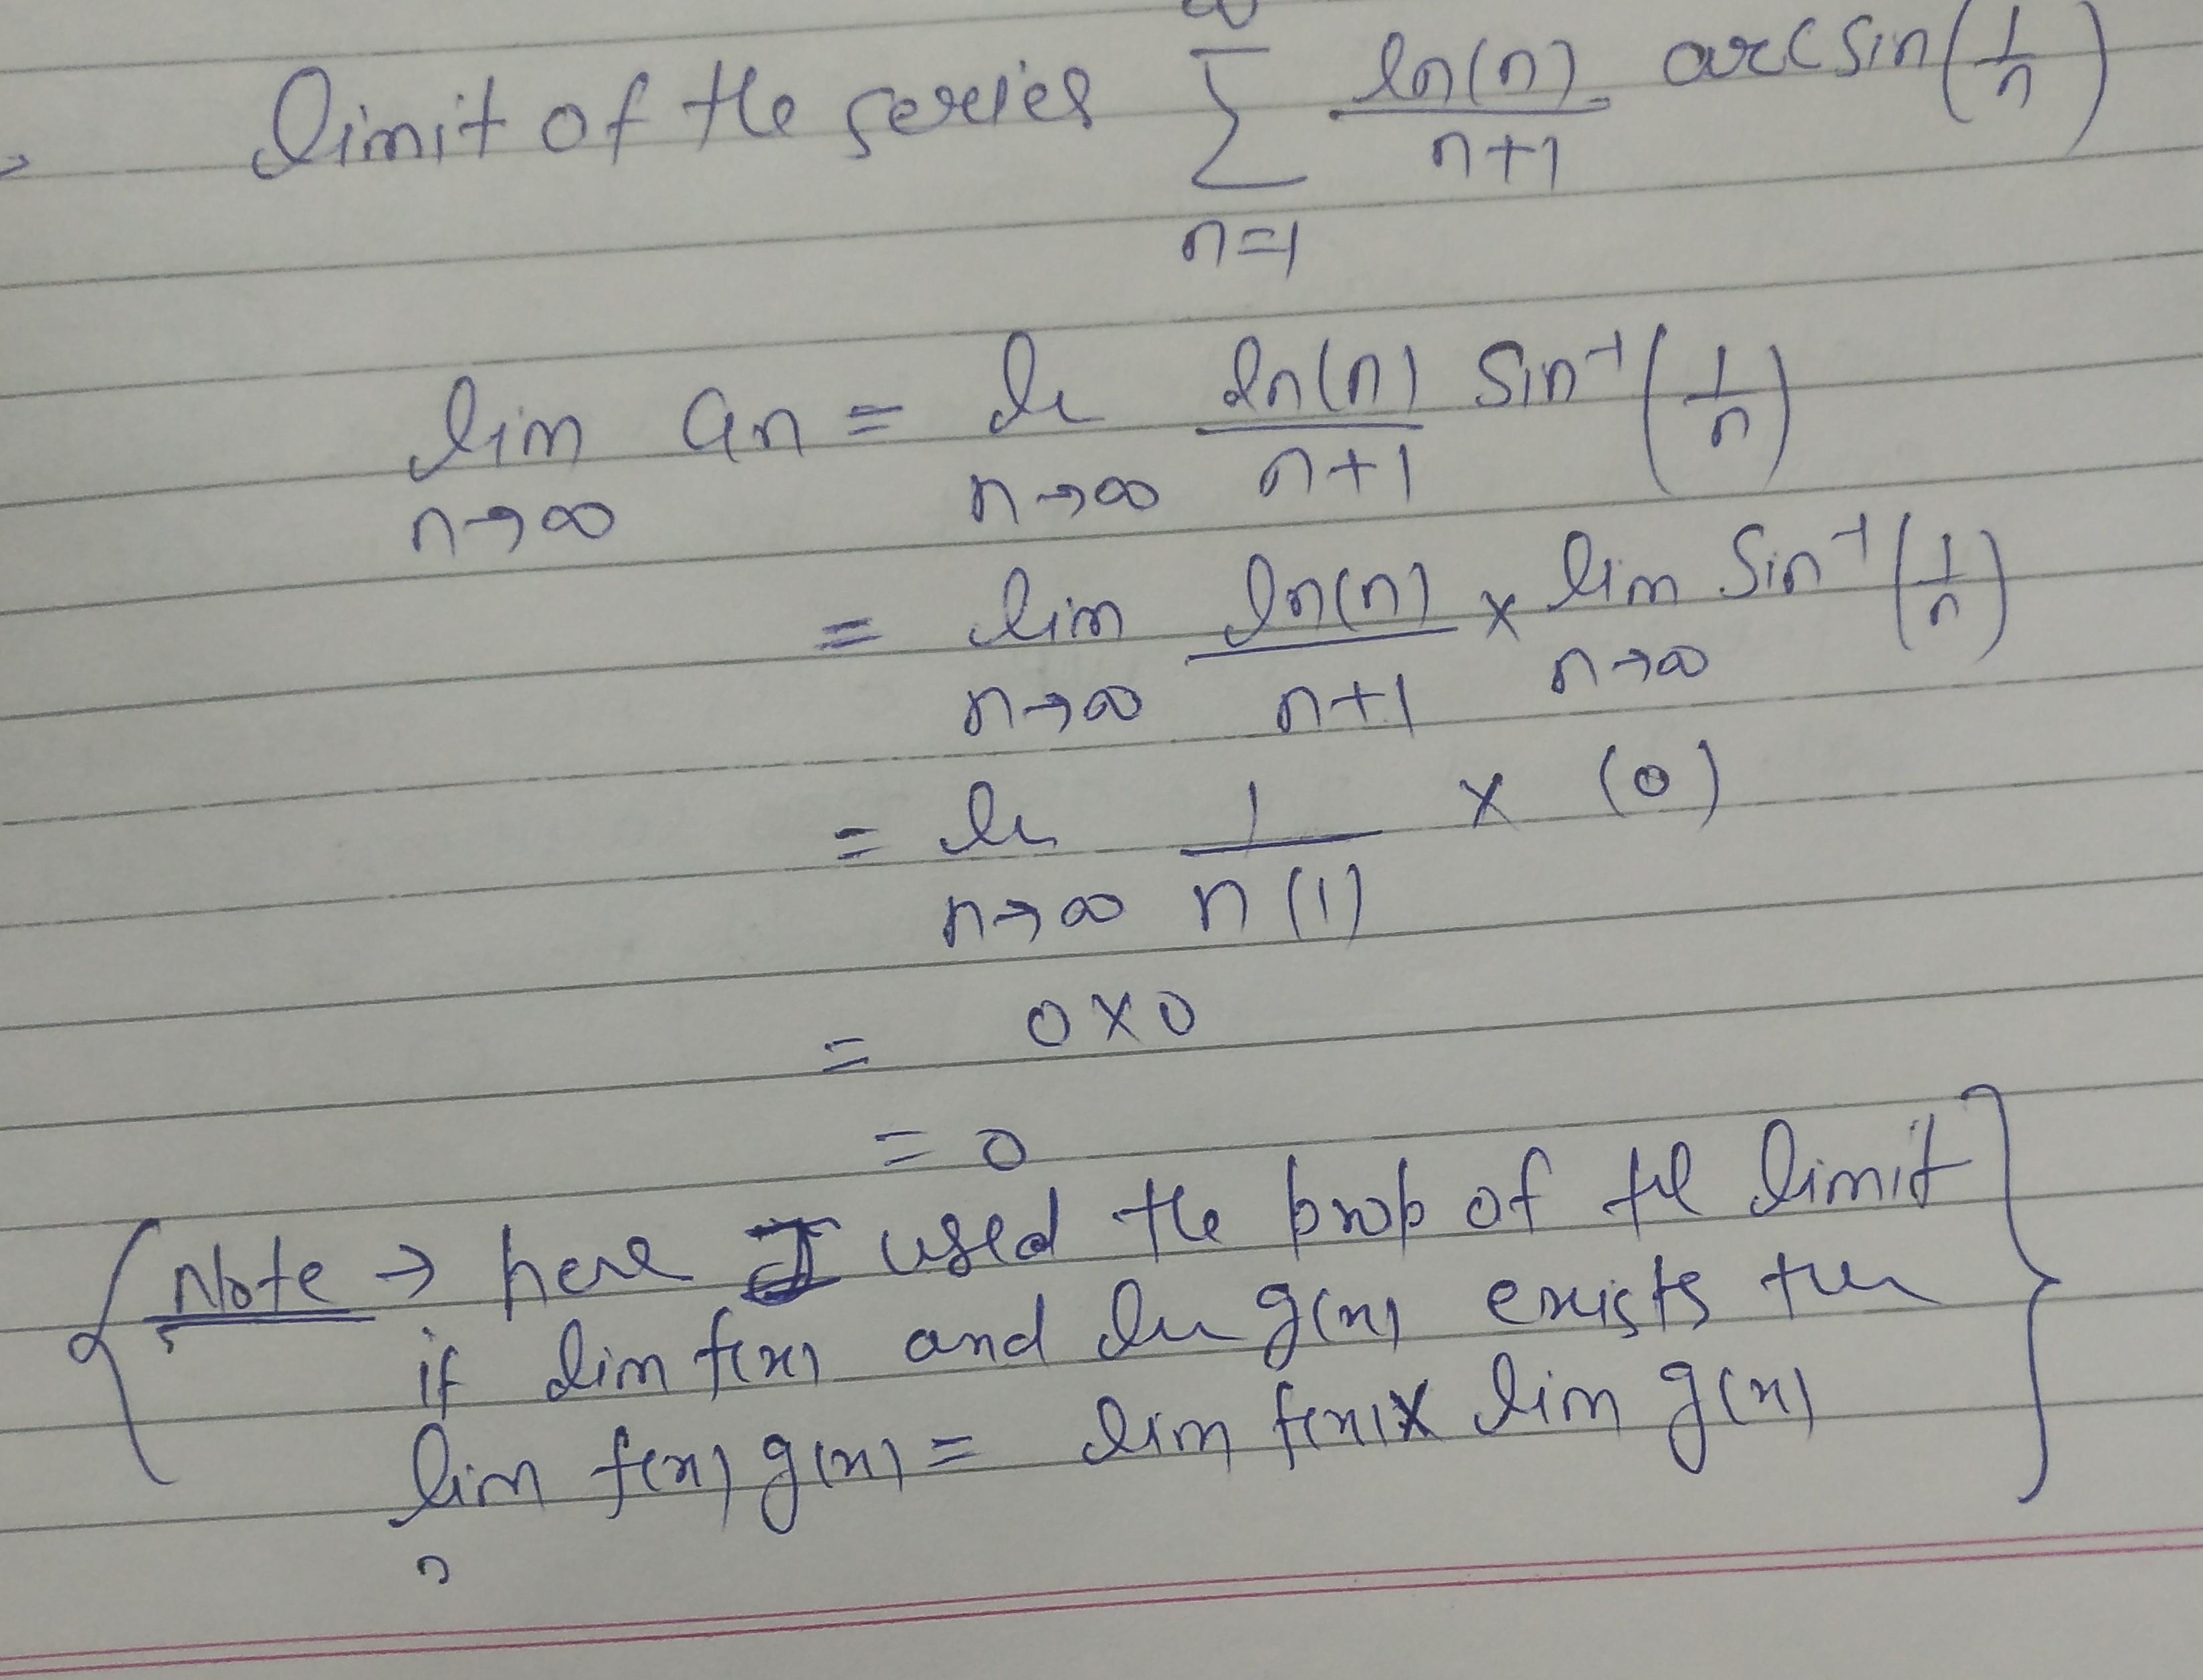 limit of the series ∞ Σ n=1 ln(n)/n+1 . arcsin(1/n)
lim n→∞ an = li n→∞ ln(n)/n+1 Sin⁻¹(1/n)
= lim n→∞ ln(n)/n+1 × lim n→∞ Sin⁻¹(1/n)
= li n→∞ 1/n(1) × (0)
= 0×0
= 0
{Note → here I used the prop of the limit
if lim f(x) and li g(x) exists then
lim f(x) g(x) = lim f(x) × lim g(x)}